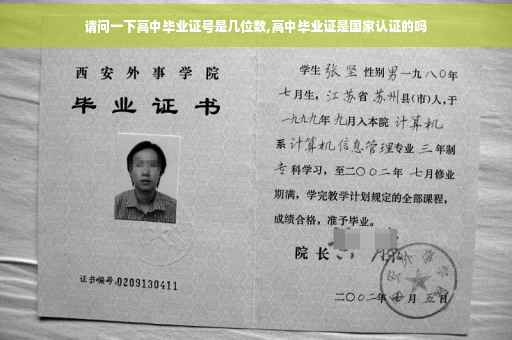 请问一下高中毕业证号是几位数,高中毕业证是国家认证的吗
西安外事学院
毕业证书
证书编号:0209130411
学生 张坚 性别 男 一九八〇年
七月生, 江苏省 苏州县(市)人,于
一九九九年 九月入本院 计算机
系 计算机信息管理专业 三 年制
专 科学习, 至二〇〇二年 七月修业
期满, 学完教学计划规定的全部课程,
成绩合格, 准予毕业。
院长
二〇〇二年 月 五日